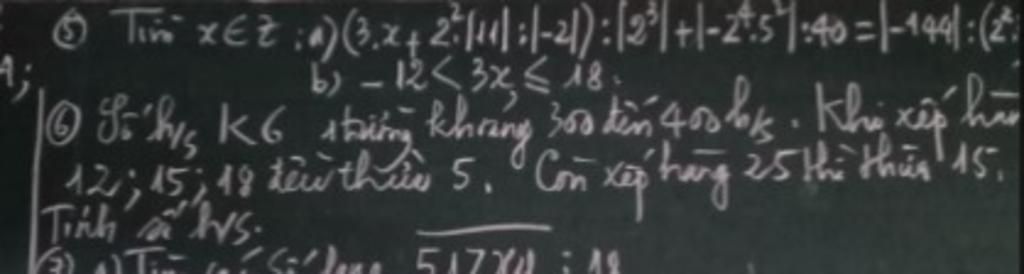 ⑤ Tìm x ∈ Z : a) (3.x + 2².|11| : |-2|) : |2³| + |-2⁴.5²| : 40 = |-144| : (2²
b) - 12 < 3x ≤ 18.
⑥ Số h/s K6 trường khoảng 300 đến 400 h/s. Khi xếp hàng
12 ; 15 ; 18 đều thừa 5. Còn xếp hàng 25 thì thừa 15.
Tính số h/s.